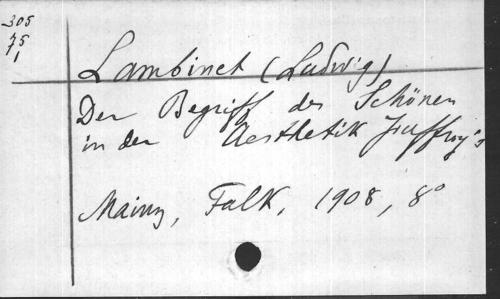 305
75
1
Lambinet (Ludwig)
Der Begriff des Schönen
in der Aesthetik Jouffroy's
Mainz, Falk, 1908, 8°